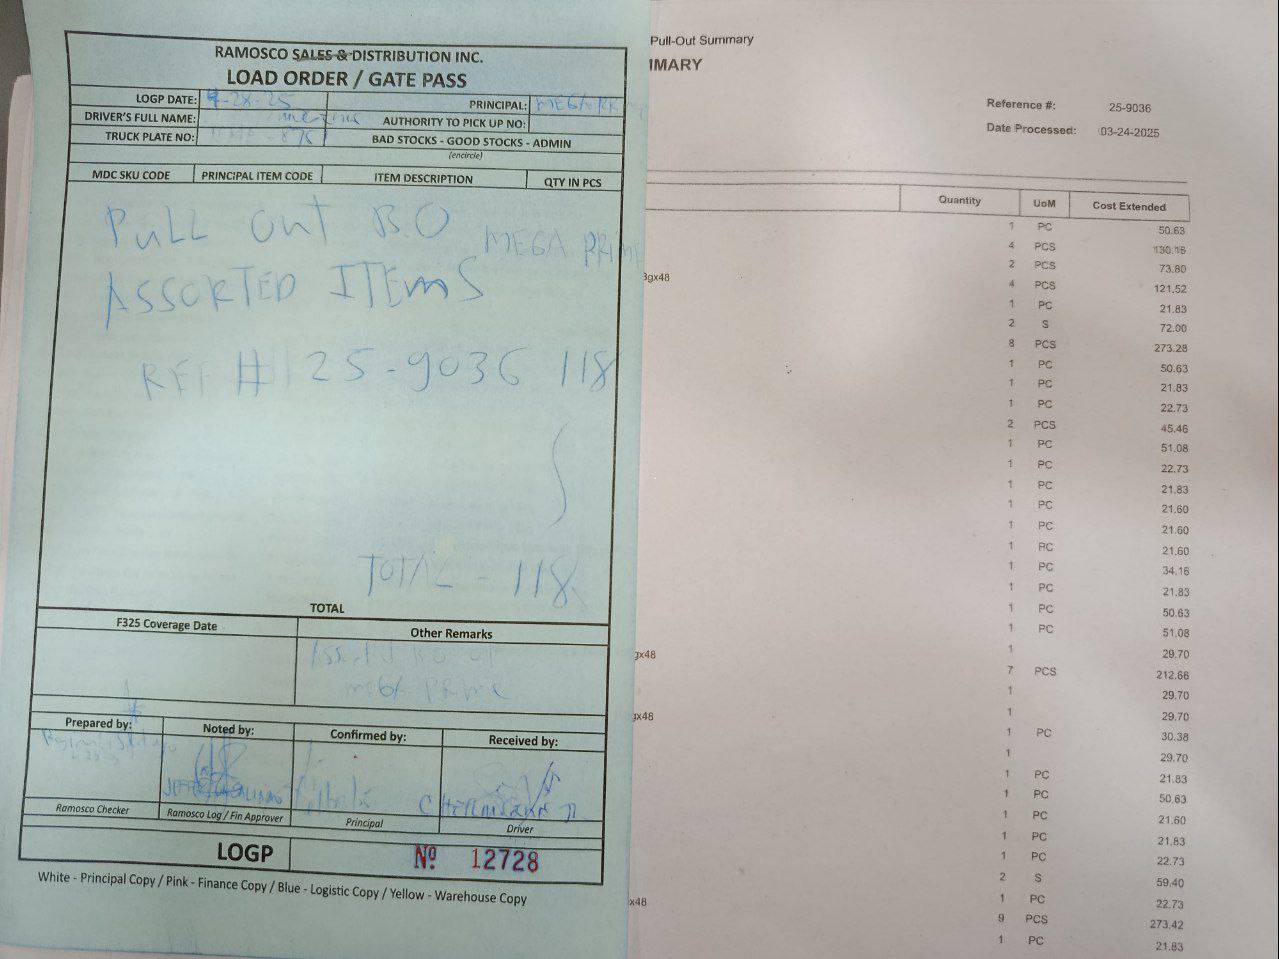 RAMOSCO SALES & DISTRIBUTION INC.
LOAD ORDER / GATE PASS
LOGP DATE: 4-28-25 PRINCIPAL: MEGA
DRIVER'S FULL NAME: AUTHORITY TO PICK UP NO:
TRUCK PLATE NO: BAD STOCKS - GOOD STOCKS - ADMIN
(encircle)
MDC SKU CODE PRINCIPAL ITEM CODE ITEM DESCRIPTION QTY IN PCS
PULL OUT B.O MEGA PRIME
ASSORTED ITEMS
REF # 25-9036 118
TOTAL - 118
TOTAL
F325 Coverage Date Other Remarks
B.O of
MEGA PRIME
Prepared by: Noted by: Confirmed by: Received by:
Ramosco Checker Ramosco Log / Fin Approver Principal Driver
LOGP Nº 12728
White - Principal Copy / Pink - Finance Copy / Blue - Logistic Copy / Yellow - Warehouse Copy
Pull-Out Summary
MMARY
Reference #: 25-9036
Date Processed: 03-24-2025
Quantity UoM Cost Extended
1 PC 50.63
4 PCS 130.16
3gx48 2 PCS 73.80
4 PCS 121.52
1 PC 21.83
2 S 72.00
8 PCS 273.28
1 PC 50.63
1 PC 21.83
1 PC 22.73
2 PCS 45.46
1 PC 51.08
1 PC 22.73
1 PC 21.83
1 PC 21.60
1 PC 21.60
1 PC 21.60
1 PC 34.16
1 PC 21.83
1 PC 50.63
1 PC 51.08
gx48 1 29.70
7 PCS 212.66
1 29.70
gx48 1 29.70
1 PC 30.38
1 29.70
1 PC 21.83
1 PC 50.63
1 PC 21.60
1 PC 21.83
1 PC 22.73
2 S 59.40
x48 1 PC 22.73
9 PCS 273.42
1 PC 21.83